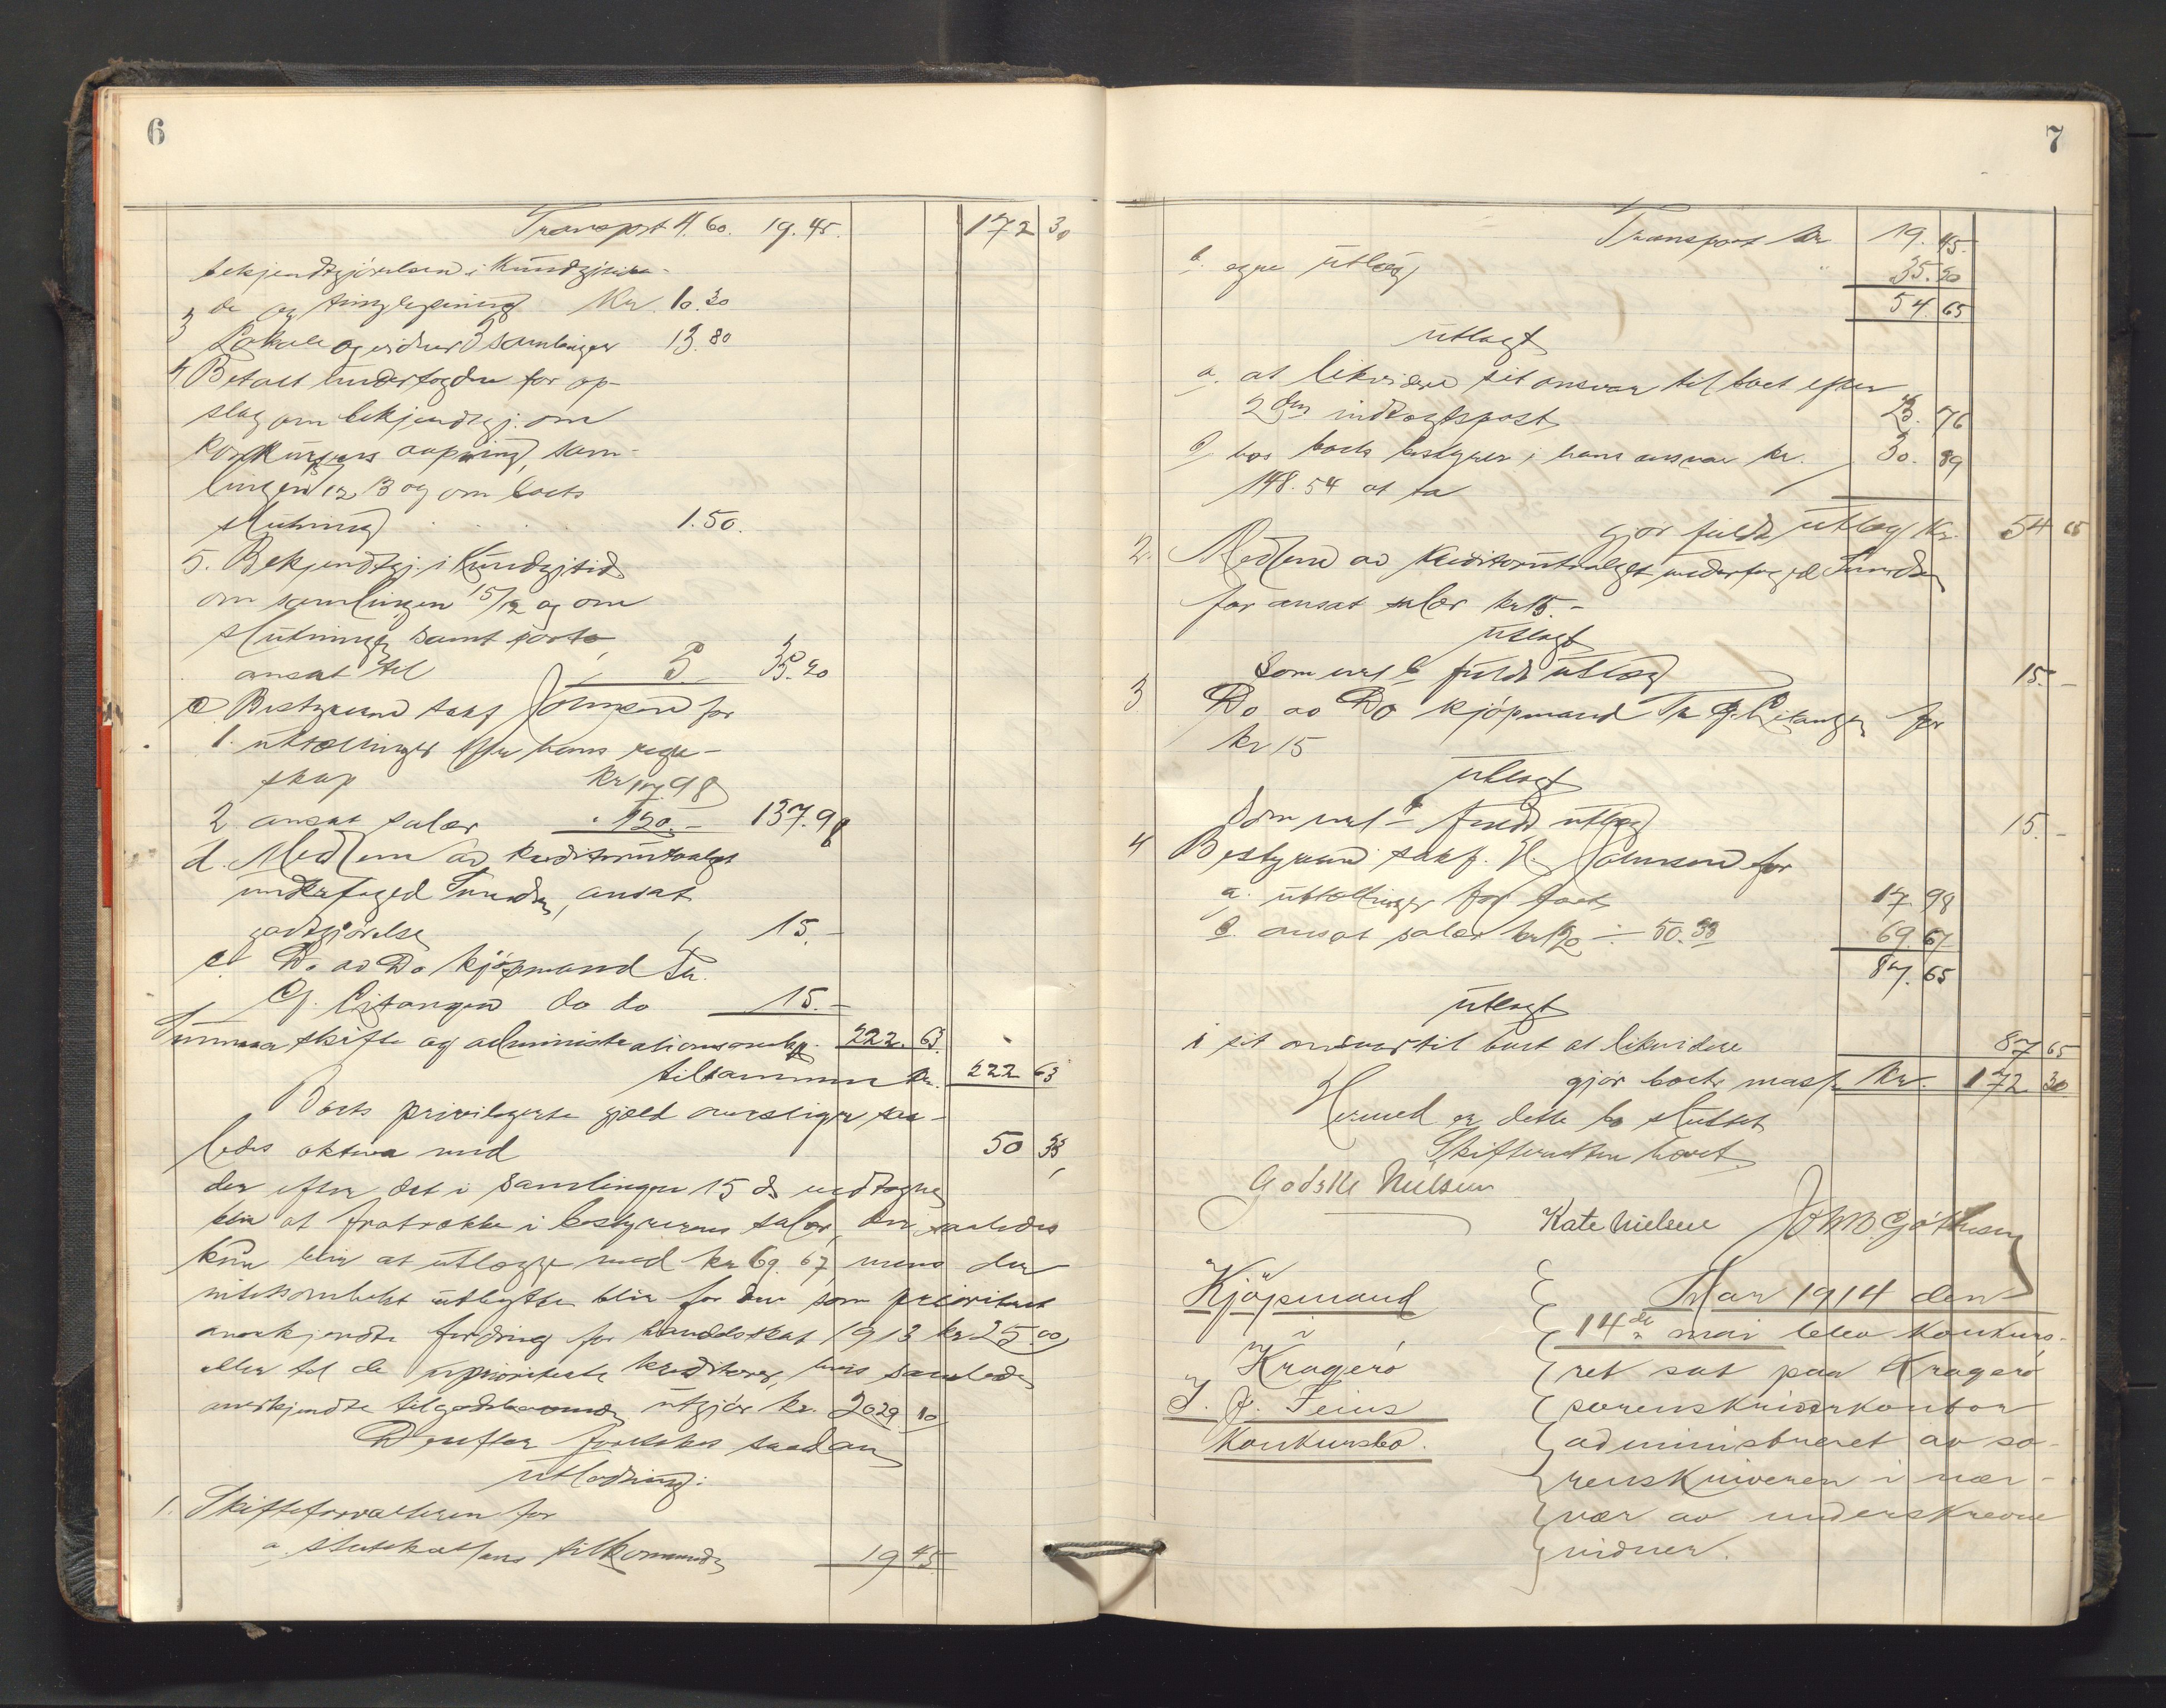 6
Transport 4.60. 19.45. 172 30
bekjendtgjörelsen i Kundgjörel-
de og tinglysning Kr. 10.30
3 Lokale og vidner 3 samlinger 13.80
4 Betalt underfogden for op-
slag om bekjendtgj. om
konkursens aapning, sam-
lingen 15/12 13 og om boets
slutning . . . 1.50.
5. Bekjendtgj. i Kundgjtid.
om samlingen 15/12 og om
slutningen samt porto,
ansat til " 5.- 35.20
c Bestyreren sakf Johnsen for
1. uttællinger efter hans regn-
skap Kr 17.98
2. ansat salær " 120.- 137.98
d. Medlem av kreditorutvalget
underfoged Tunder, ansat
godtgjörelse " 15.-
e. Do av Do kjöpmand Tr.
G. do do 15.-
Summa skifte og administrationsomk. 222.63.
tilsammen Kr. 222 63
Boets privilegerte gjæld overstiger saa-
ledes aktiva med 50 33
der efter det i samlingen 15 ds vedtagne
blir at fratrække i bestyrerens salær, der saaledes
kun blir at utlægge med kr 69.67, mens der
intetsomhelst utbytte blir for den som prioritert
anerkjendte fordring for landsskat 1913 kr 25.00
eller til de uprioriterte kreditorer, hvis samlede
anerkjendte tilgodehavende utgjör kr. 2029.10
Derefter foretokes saadan
utlodning:
1. Skifteforvalteren for
a. statskassens tilkommende 19 45
7
Transport kr 19.45
b. egne utlæg " 35.20
54.65
utlagt
a. at likvidere sit ansvar til boet efter
2den indtægtspost 23.76
b. hos boets bestyrer i hans ansvar kr. 30.89
148.54 at ta
gjör fuldt utlæg Kr. 54 65
2. Medlem av Kreditorutvalget underfoged Tunder
for ansat salær kr 15.-
utlagt
Som ved b fuldt utlæg 15.-
3 Do av Do kjöpmand Tr G. for
kr 15
utlagt
Som ved b fuldt utlæg 15.-
4 Bestyreren sakf. H. Johnsen for
a. utteællinger for boet 17.98
b. ansat salær kr 120 ÷ 50.33 69.67
87.65
utlagt
i sit ansvar til boet at likvidere 87 65
gjör boets masse Kr. 172.30
Hermed er dette bo sluttet
Skifteretten hævet
Godske Nielsen
Kate Nielsen
Kjöpmand
i
Kragerö
J. J. Feius
Konkursbo.
Aar 1914 den
14de mai blev konkurs-
ret sat paa Kragerö
sorenskriverkontor
administreret av so-
renskriveren i nær-
vær av underskrevne
vidner.